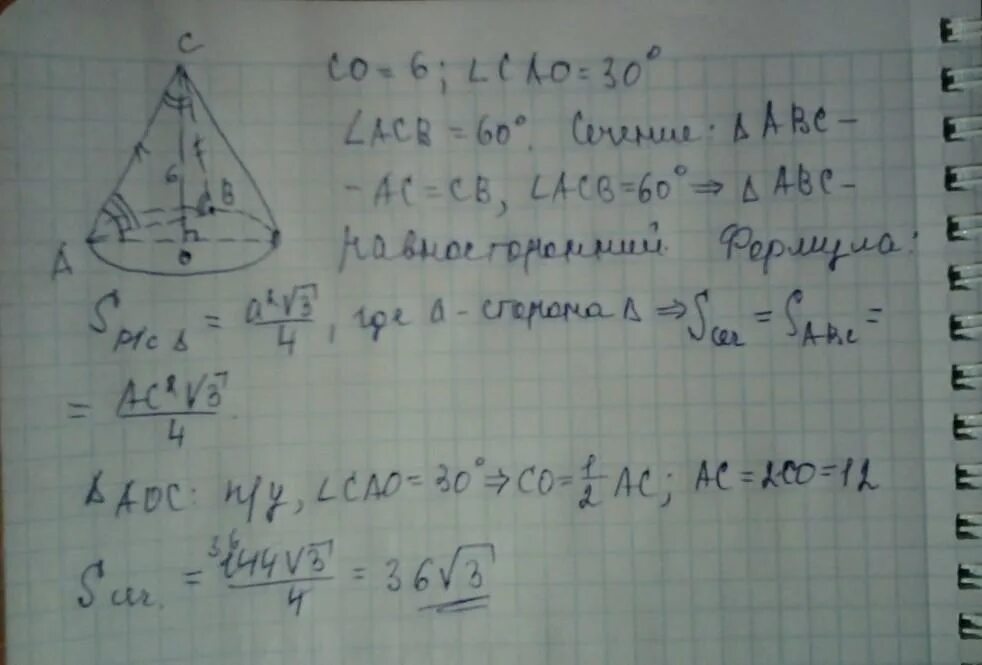 C
CO = 6; ∠CAO = 30°
∠ACB = 60°. Сечение: Δ ABC –
– AC = CB, ∠ACB = 60° ⇒ Δ ABC –
6
B
A
O
равносторонний. Формула:
S р/с Δ = a²√3/4, где a - сторона Δ ⇒ S сеч = S ABC =
= AC²√3/4
Δ AOC: п/у, ∠CAO = 30° ⇒ CO = 1/2 AC; AC = 2CO = 12
36
S сеч. = 144√3/4 = 36√3